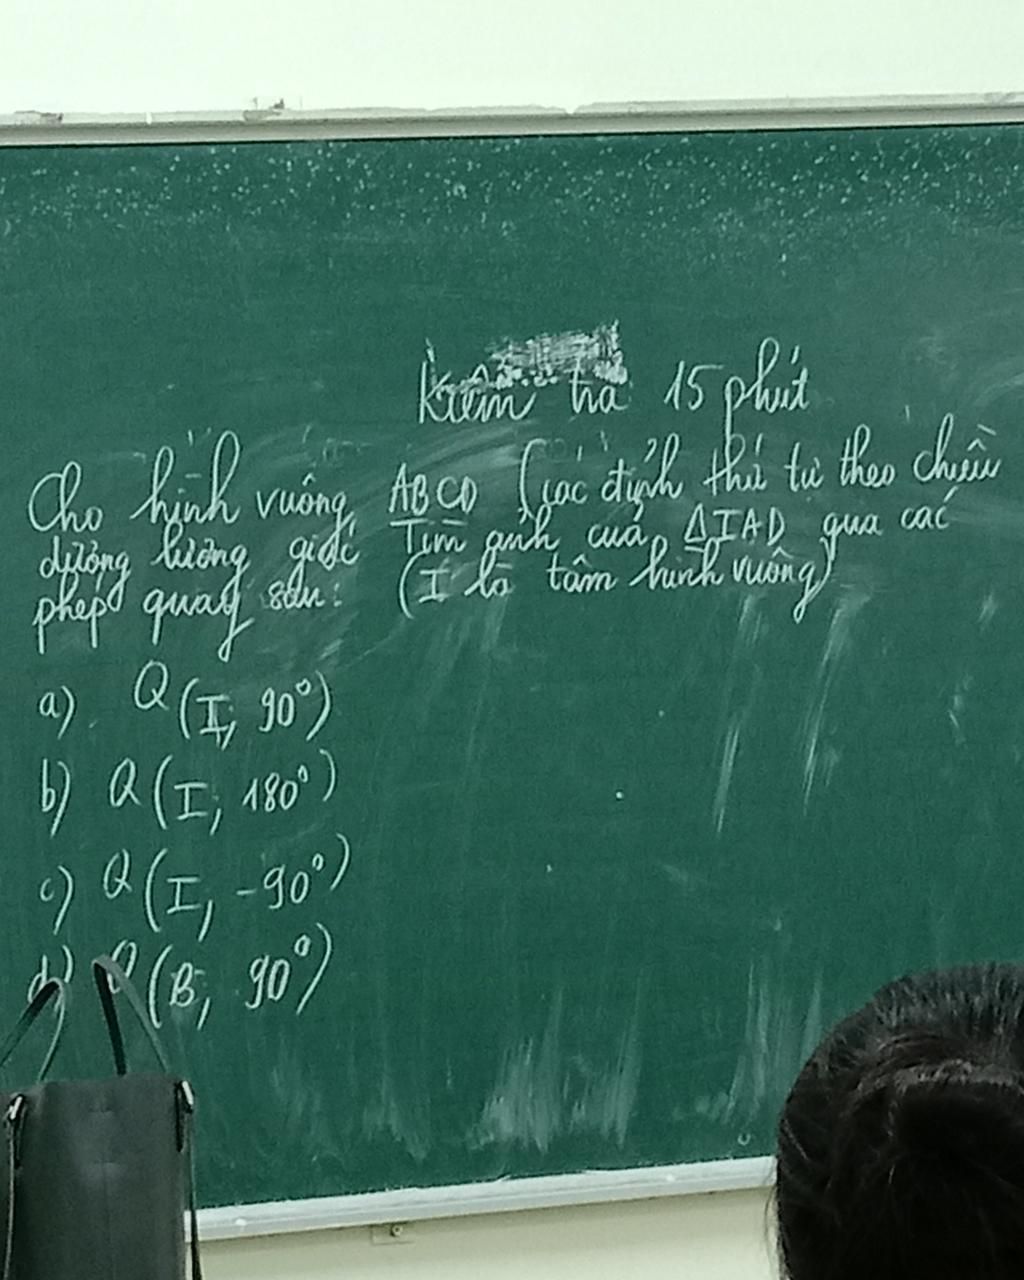 Kiểm tra 15 phút
Cho hình vuông ABCD (các đỉnh thứ tự theo chiều
dương lượng giác Tìm ảnh của ΔIAD qua các
phép quay sau: (I là tâm hình vuông)
a) Q(I; 90°)
b) Q(I; 180°)
c) Q(I, -90°)
d) Q(B; 90°)